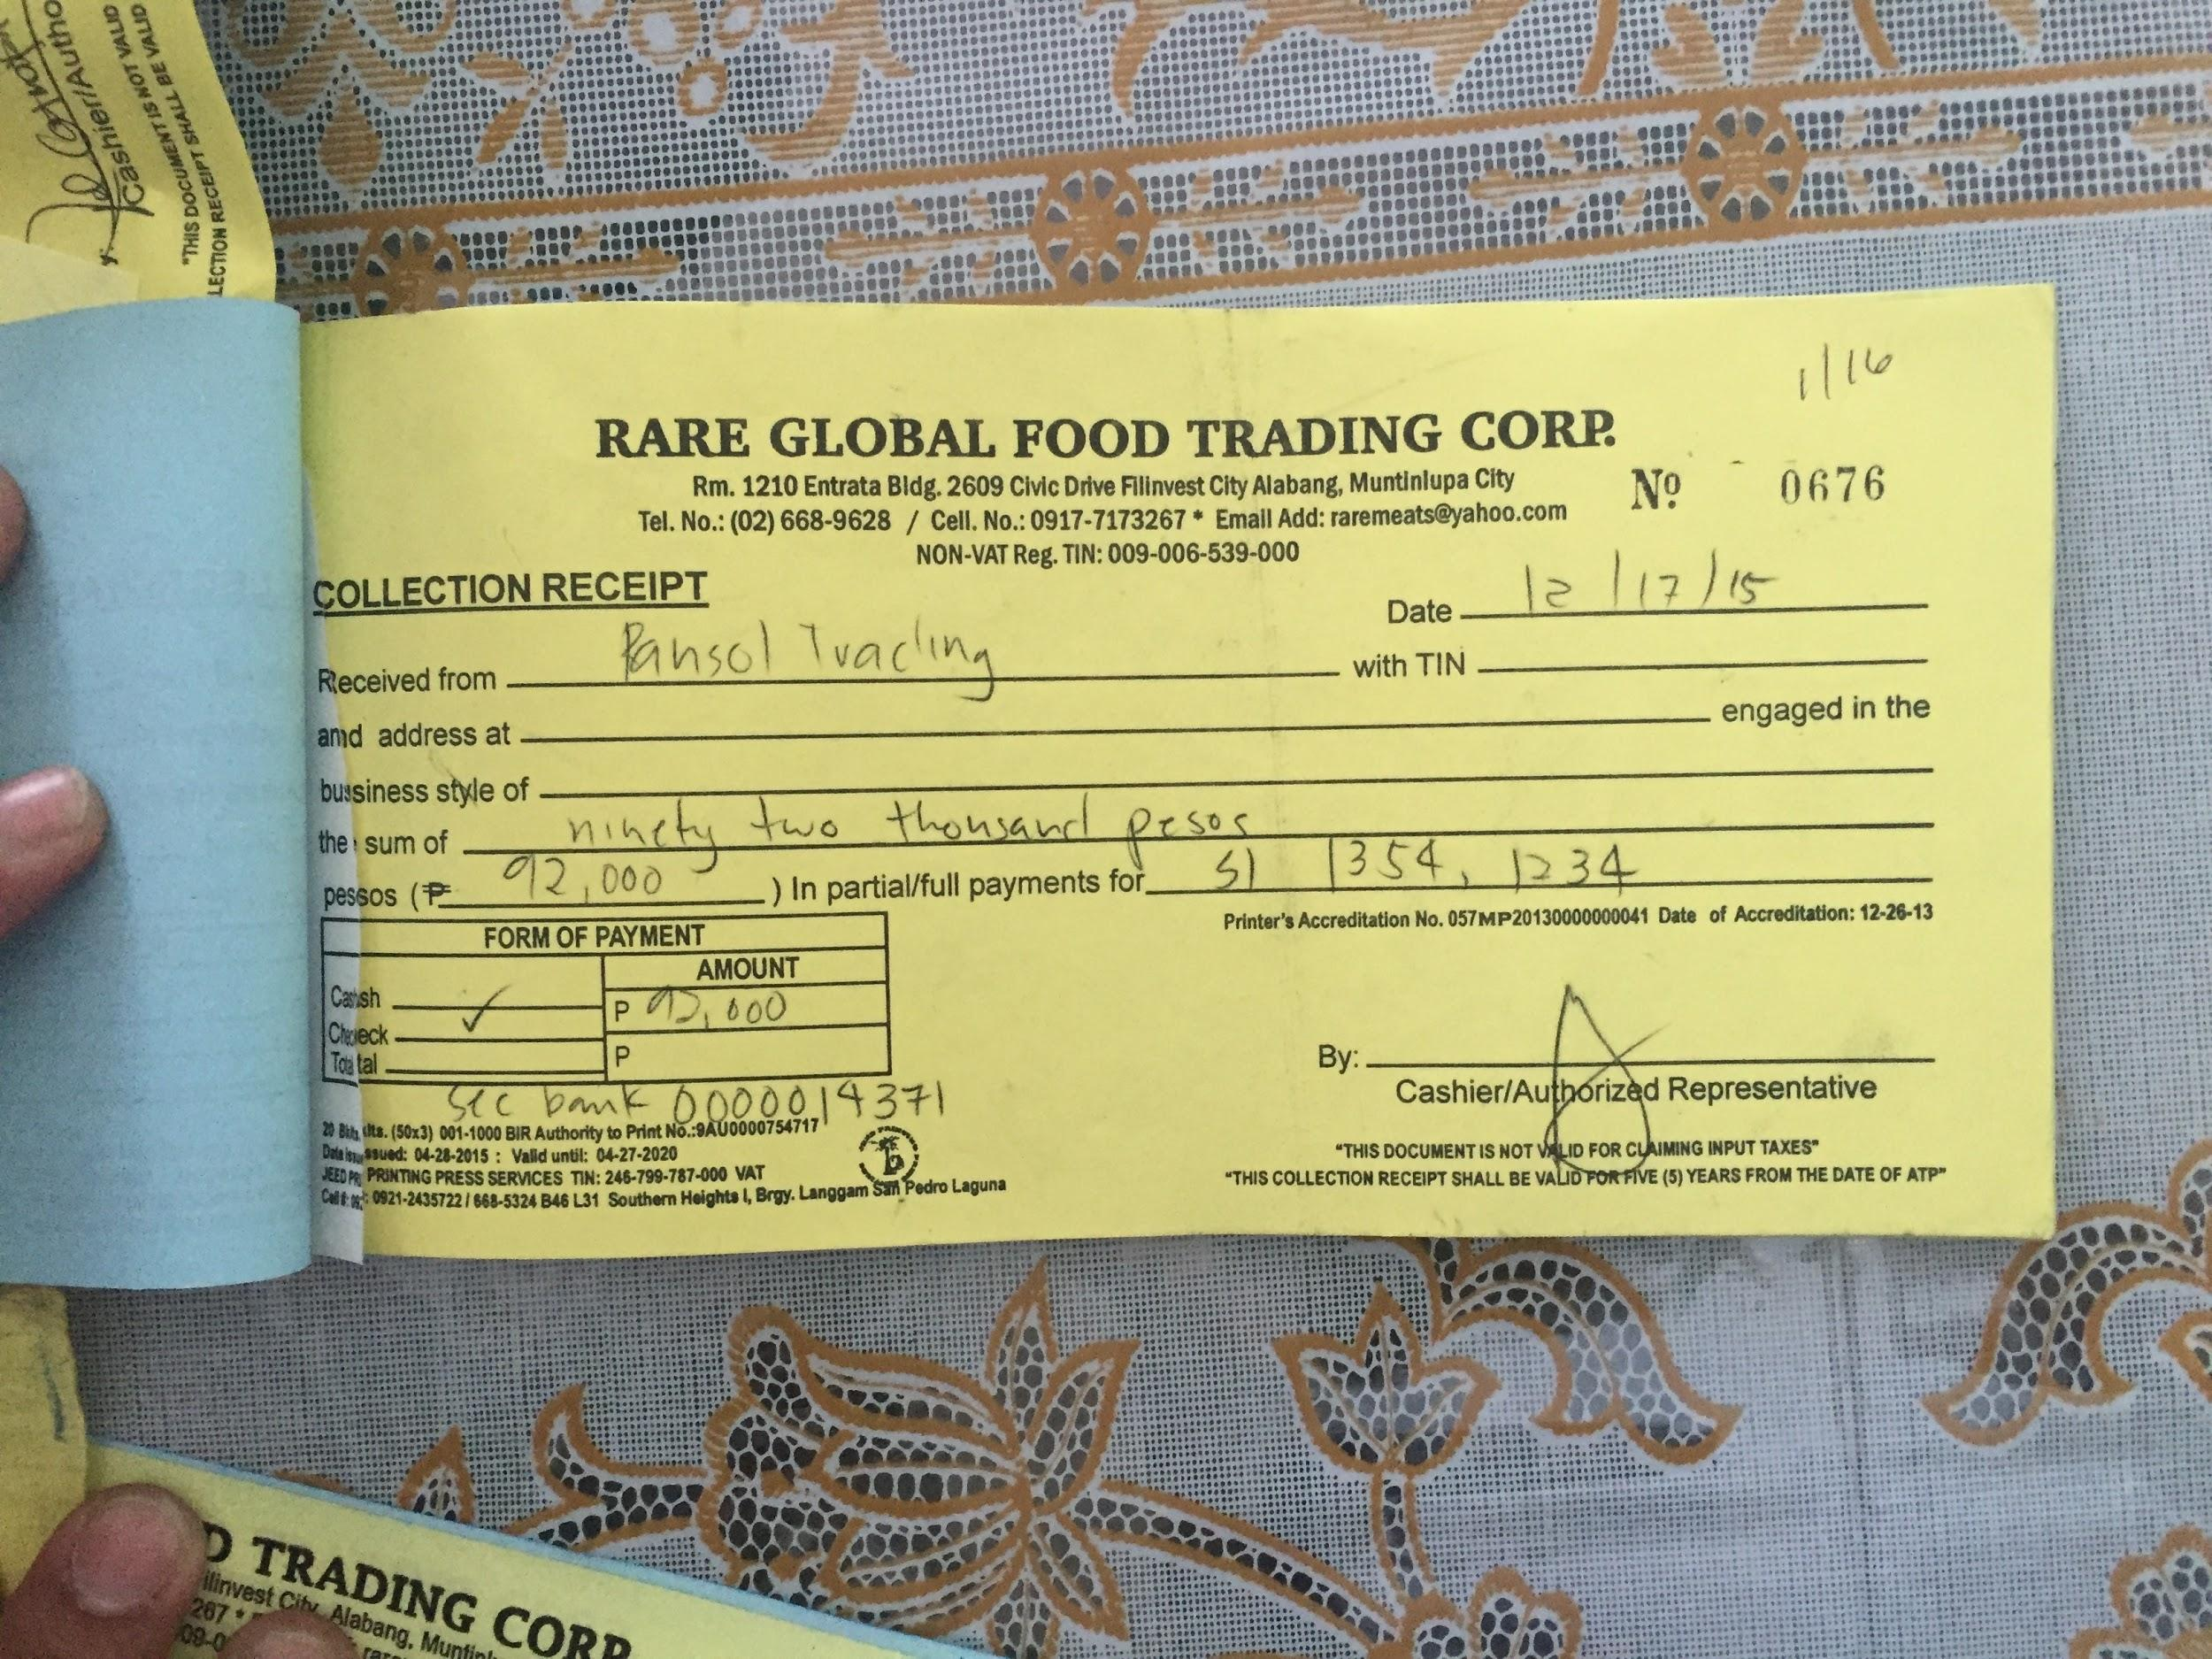 Cashier/Autho
"THIS DOCUMENT IS NOT VALID
LECTION RECEIPT SHALL BE VALID
1/16
RARE GLOBAL FOOD TRADING CORP.
Rm. 1210 Entrata Bldg. 2609 Civic Drive Filinvest City Alabang, Muntinlupa City
Nº 0676
Tel. No.: (02) 668-9628 / Cell. No.: 0917-7173267 * Email Add: raremeats@yahoo.com
NON-VAT Reg. TIN: 009-006-539-000
COLLECTION RECEIPT
Date 12/17/15
Received from Pansol Trading with TIN
and address at engaged in the
business style of
the sum of ninety two thousand pesos
pesos (₱ 92,000 ) In partial/full payments for SI 1354, 1234
Printer's Accreditation No. 057MP20130000000041 Date of Accreditation: 12-26-13
FORM OF PAYMENT
AMOUNT
Cash
P 92,000
Check ✓
Total
P
By:
Cashier/Authorized Representative
Sec bank 0000014371
20 Bklts. (50x3) 001-1000 BIR Authority to Print No.:9AU0000754717
Date issued: 04-28-2015 : Valid until: 04-27-2020
JEED PRINTING PRESS SERVICES TIN: 246-799-787-000 VAT
Cell #: 0921-2435722 / 668-5324 B46 L31 Southern Heights I, Brgy. Langgam San Pedro Laguna
"THIS DOCUMENT IS NOT VALID FOR CLAIMING INPUT TAXES"
"THIS COLLECTION RECEIPT SHALL BE VALID FOR FIVE (5) YEARS FROM THE DATE OF ATP"
D TRADING CORP.
ilinvest City, Alabang, Muntinl
267 *
09-0